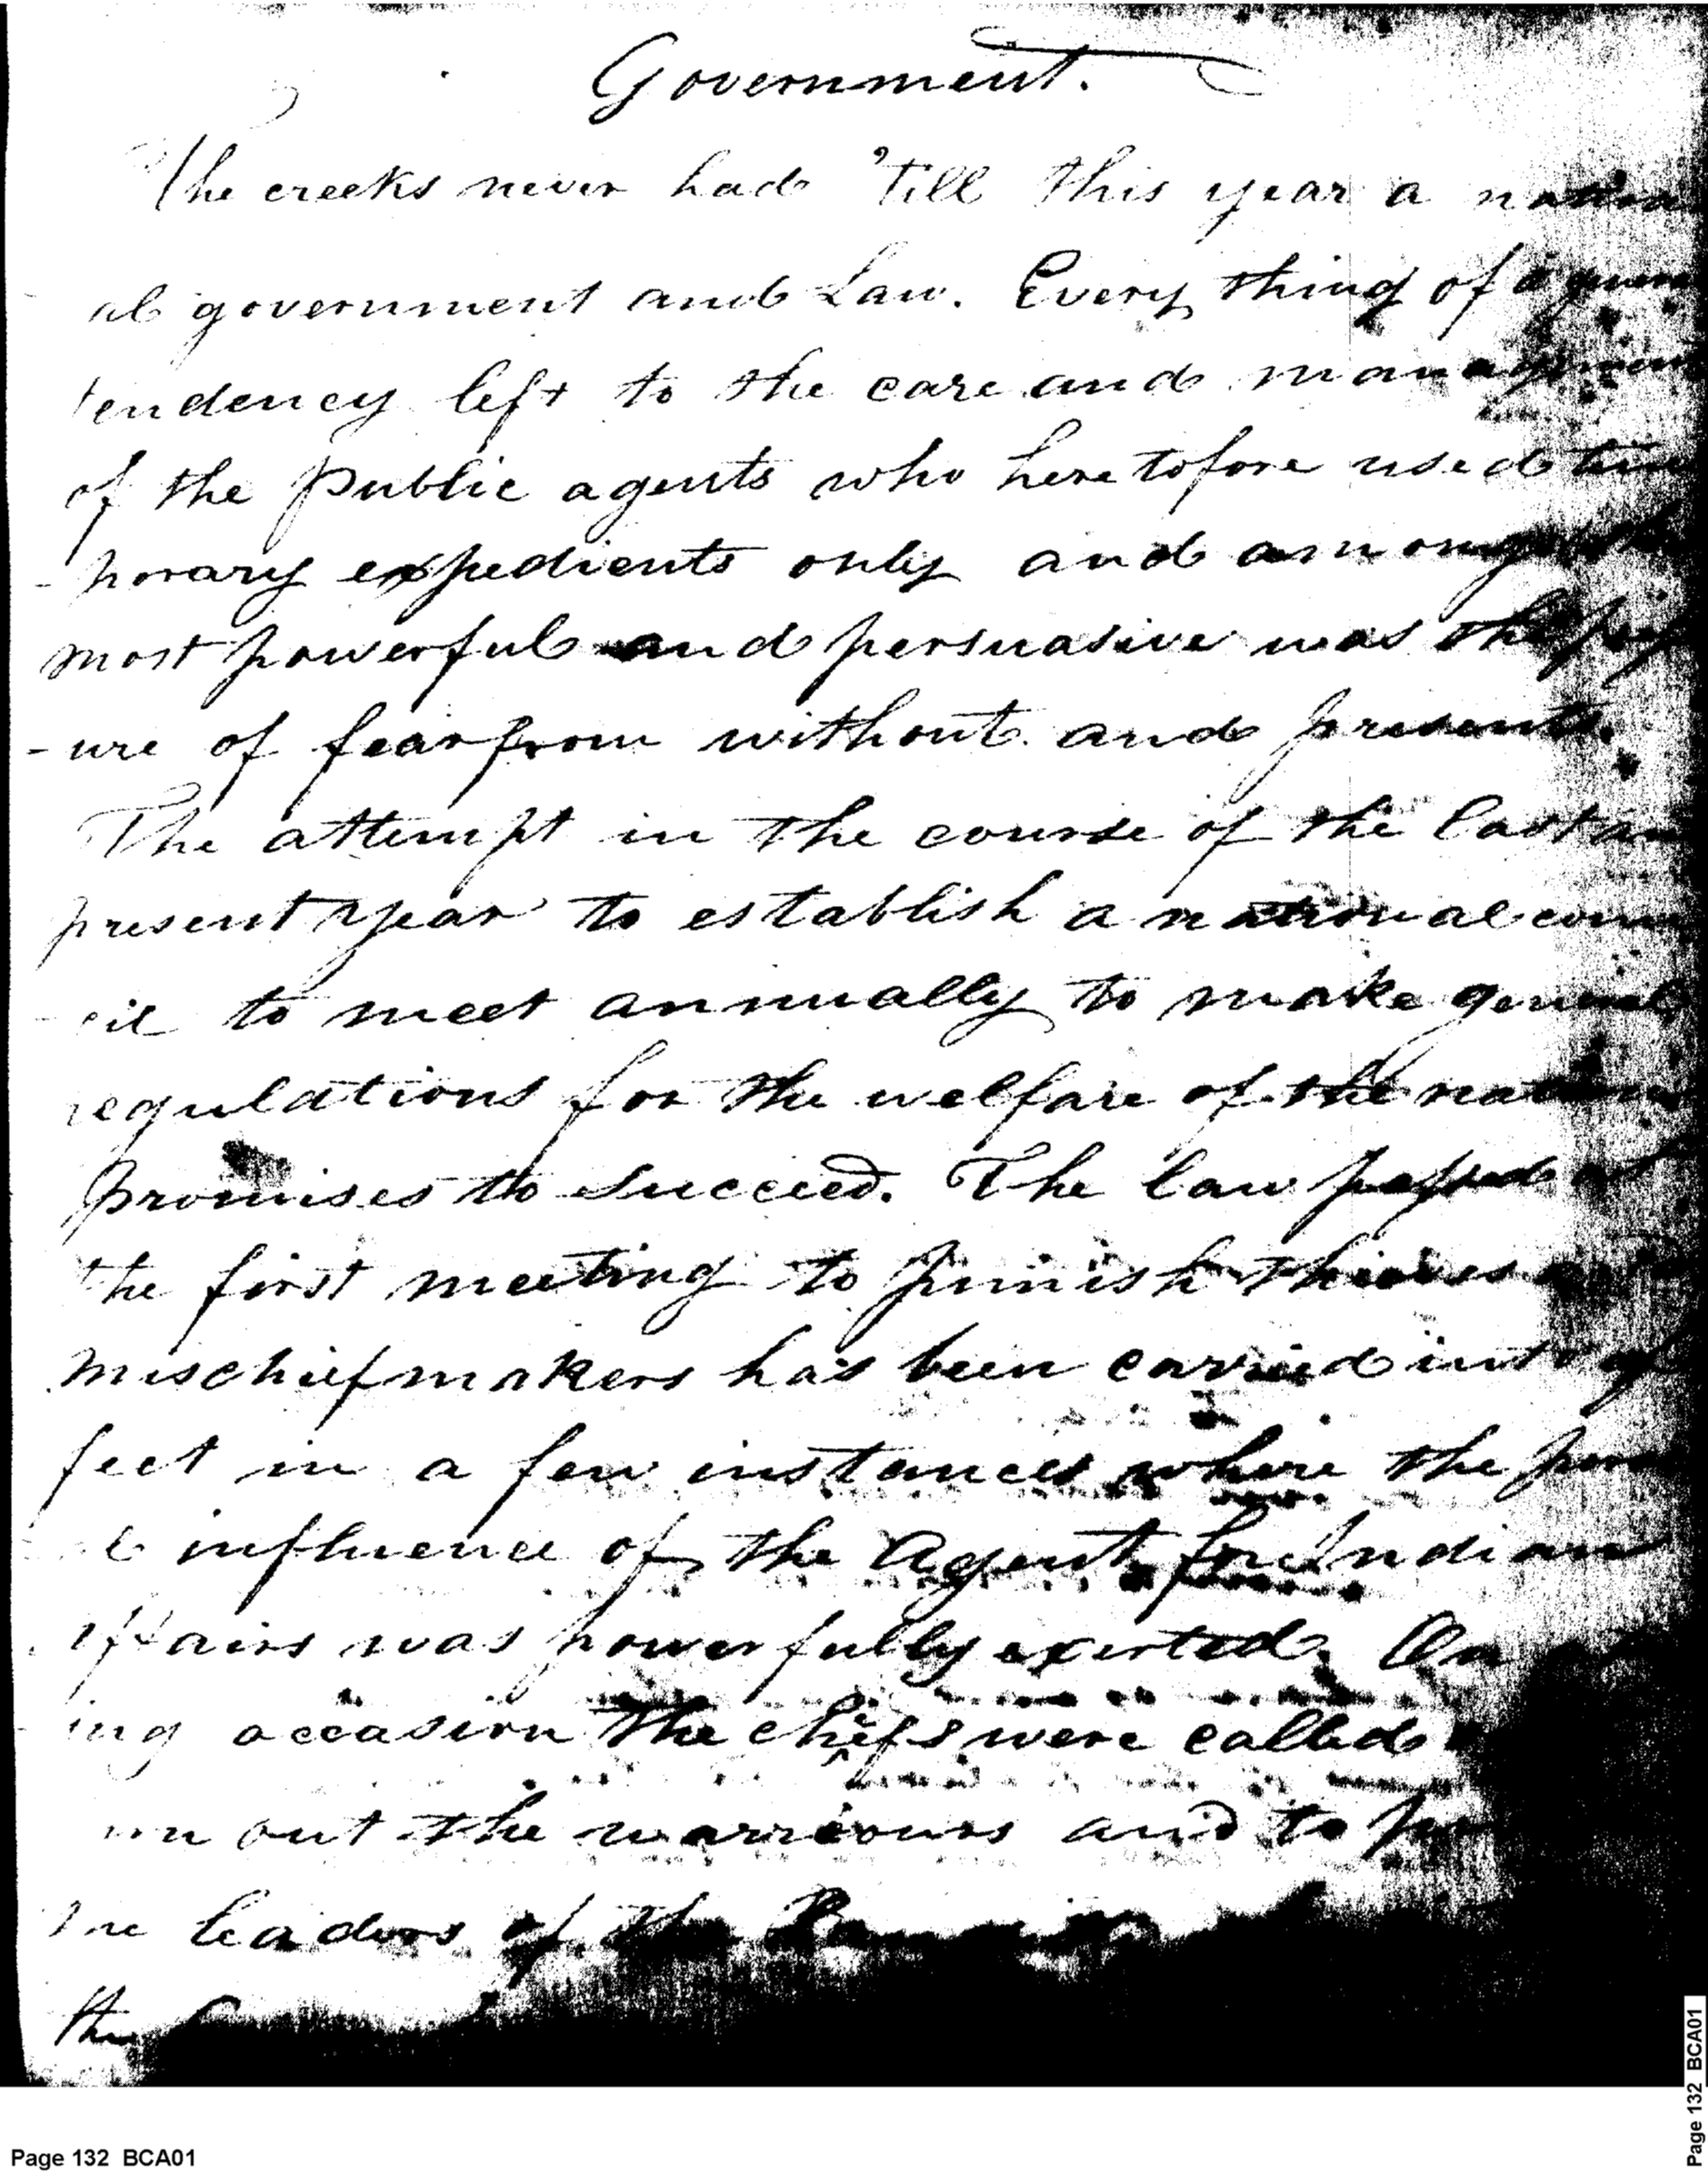 Government.
The creeks never had 'till this year a nation
al government and Law. Every thing of a general
tendency left to the care and management
of the Public agents who heretofore used tem
- porary expedients only and amongst the
most powerful and persuasive was the pres
- ure of fear from without and presents.
The attempt in the course of the last and
present year to establish a national coun
- cil to meet annually to make general
regulations for the welfare of the nation
promises to succeed. The law passed at
the first meeting to punish thieves and
mischief makers has been carried into ef
fect in a few instances where the
influence of the Agent for Indian
affairs was powerfully exerted. On
ing occasion the chiefs were called
out the warriours and to
the leaders of the
the
Page 132 BCA01
Page 132 BCA01